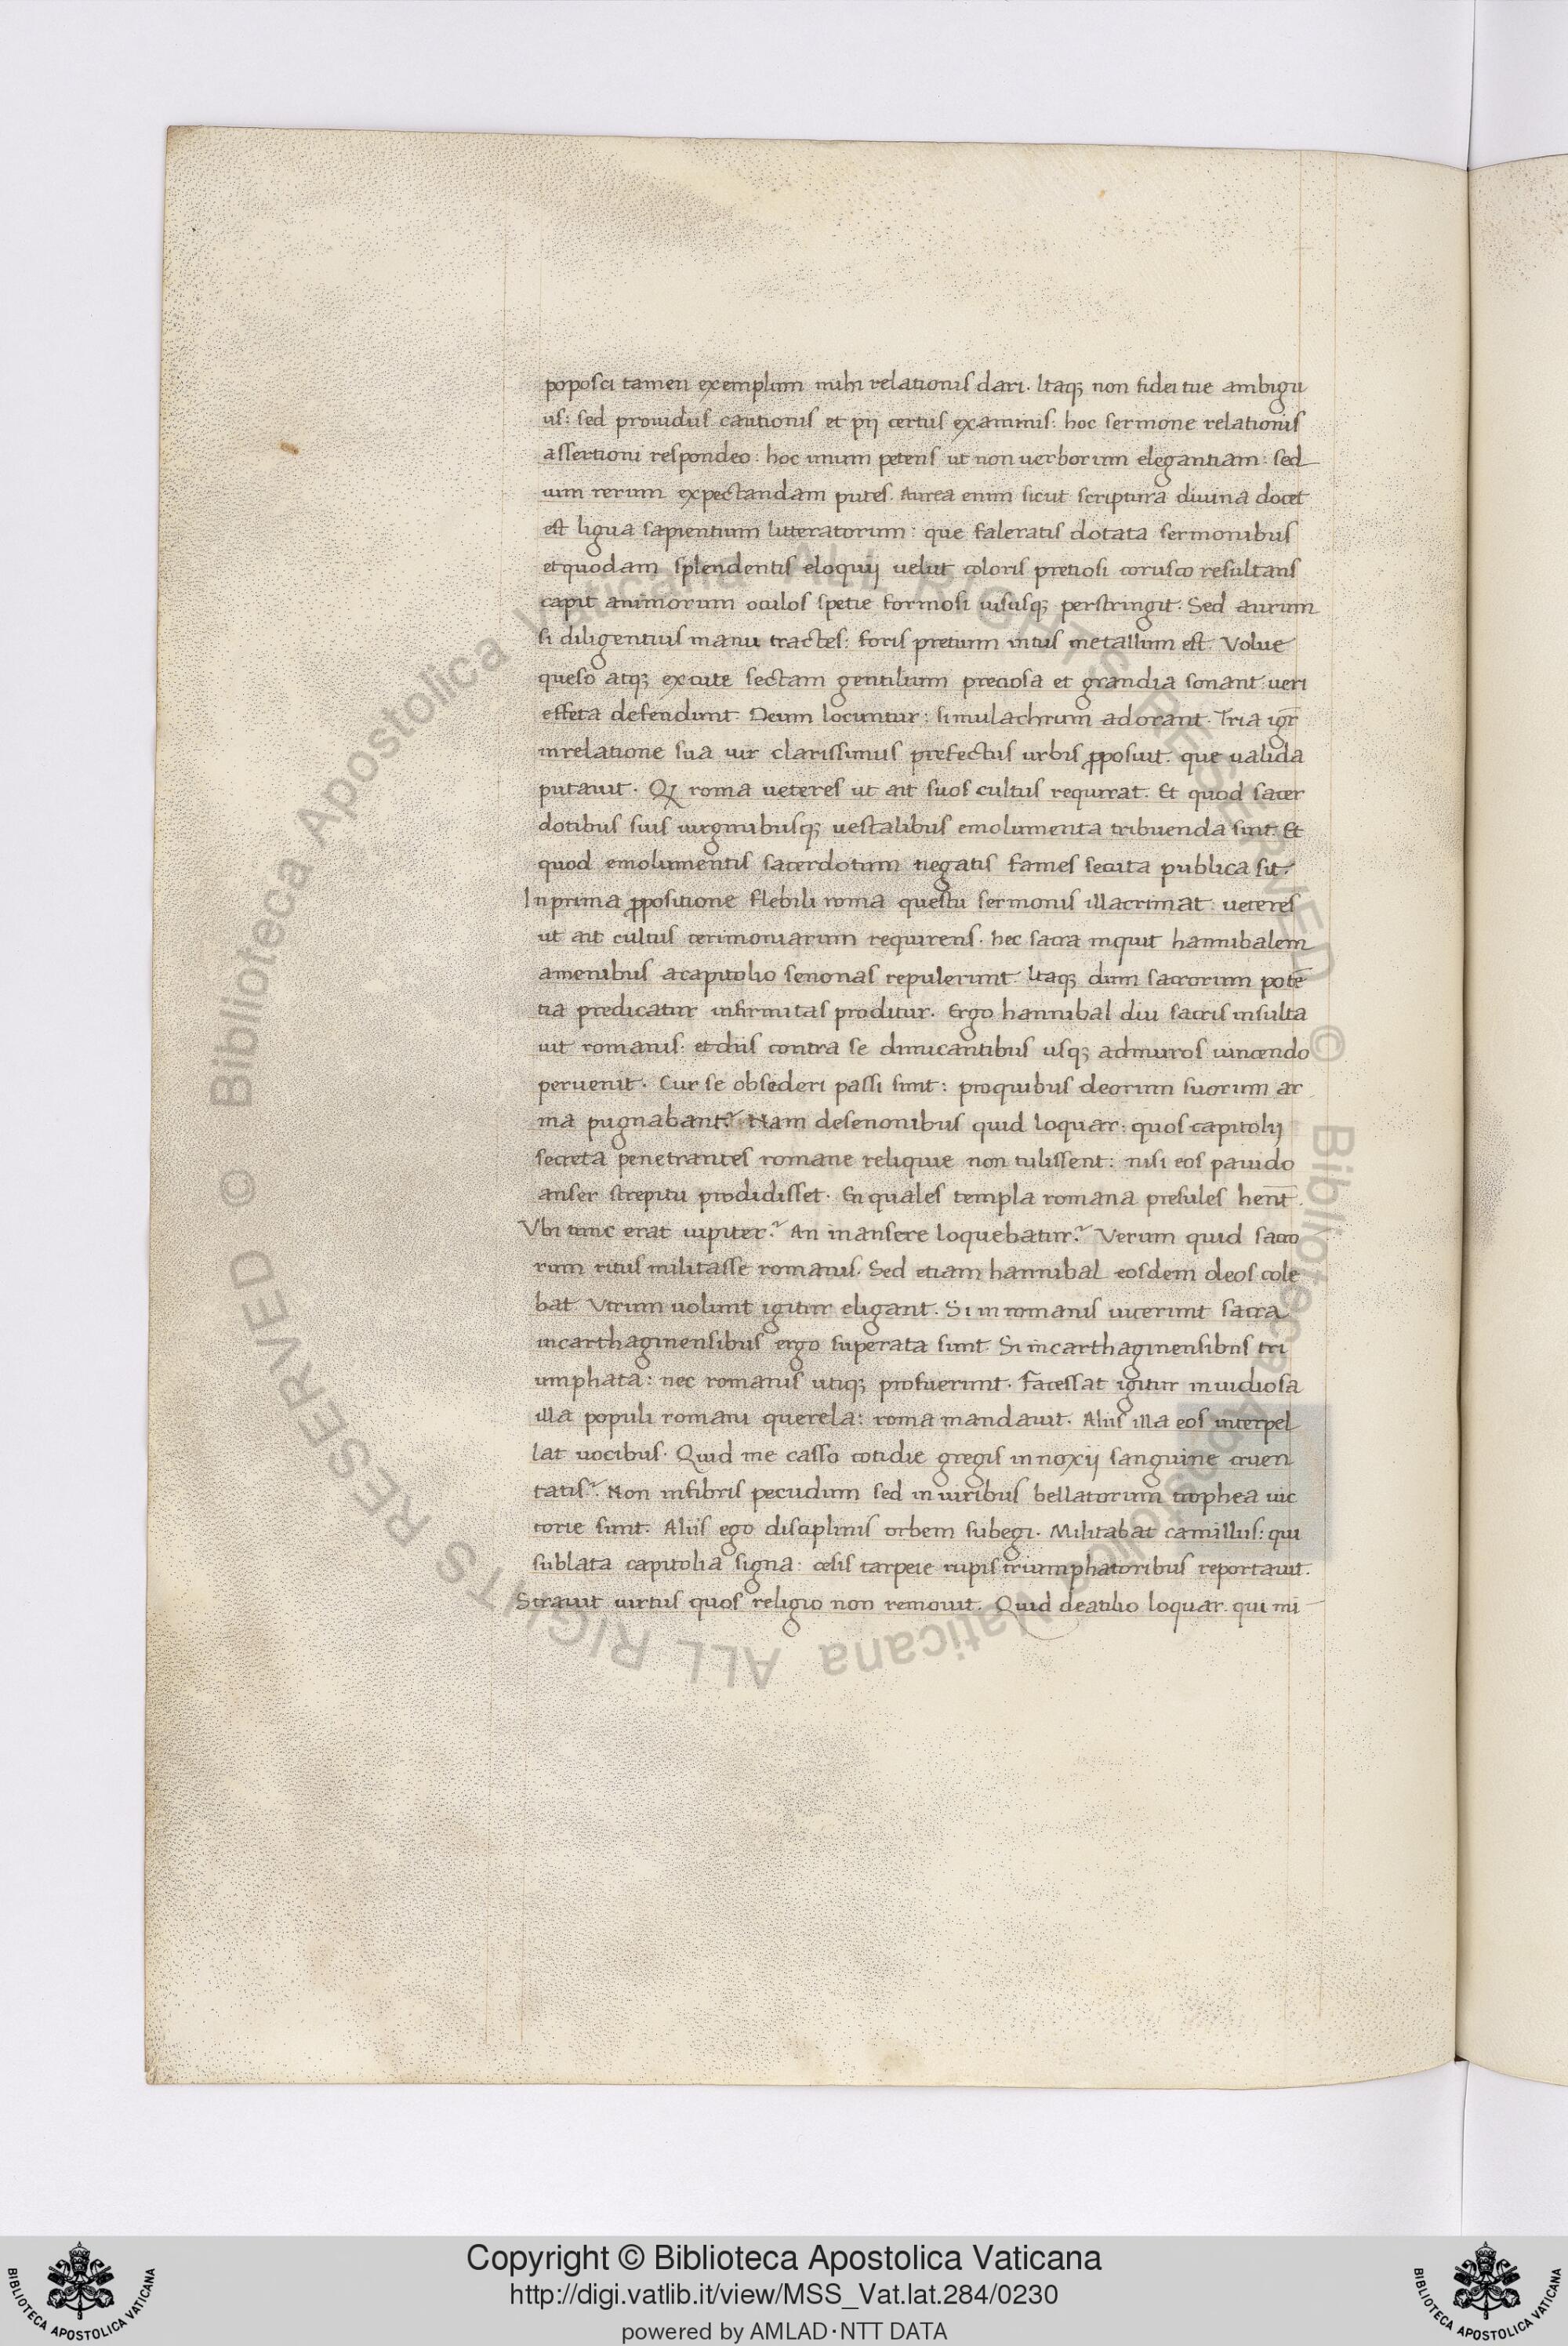 poposci tamen exemplum mihi relationis dari. Itaq; non fidei tue ambigu
us: sed prouidus cautionis et pij certus examinis: hoc sermone relationis
assertioni respondeo: hoc unum petens ut non uerborum elegantiam: sed
uim rerum expectandam putes. Aurea enim sicut scriptura diuina docet
est ligua sapientium litteratorum: que faleratis dotata sermonibus
et quodam splendentis eloquij uelut coloris pretiosi corusco resultans
capit animorum oculos spetie formosi uisusq; perstringit. Sed aurum
si diligentius manu tractes: foris pretium intus metallum est. Volue
queso atq; excute sectam gentilium preciosa et grandia sonant: ueri
effeta defendunt. Deum locuntur: simulachrum adorant. Tria igr̄
in relatione sua uir clarissimus prefectus urbis ꝓposuit. que ualida
putauit. Qꝫ roma ueteres ut ait suos cultus requirat. Et quod sacer
dotibus suis uirginibusq; uestalibus emolumenta tribuenda sint. Et
quod emolumentis sacerdotum negatis fames secuta publica sit.
In prima ꝓpositione flebili roma questu sermonis illacrimat: ueteres
ut ait cultus cerimoniarum requirens. hec sacra inquit hannibalem
amenibus a capitolio senonas repulerunt. Itaq; dum sacrorum potē
tia predicatur infirmitas proditur. Ergo hannibal diu sacris insulta
uit romanis: et diis contra se dimicantibus usq; ad muros uincendo
peruenit. Cur se obsederi passi sunt: pro quibus deorum suorum ar
ma pugnabant? Nam de senonibus quid loquar: quos capitolij
secreta penetrantes romane reliquie non tulissent: nisi eos pauido
anser strepitu prodidisset. En quales templa romana presules hen̄t.
Vbi tunc erat iupiter? An in ansere loquebatur? Verum quid sacro
rum ritus militasse romanis. Sed etiam hannibal eosdem deos cole
bat. Vtrum uolunt igitur eligant. Si in romanis uicerunt sacra
in carthaginensibus ergo superata sunt. Si in carthaginensibus tri
umphata: nec romanis utiq; profuerunt. Facessat igitur inuidiosa
illa populi romani querela: roma mandauit. Aliis illa eos interpel
lat uocibus. Quid me casso cotidie gregis innoxij sanguine cruen
tatis? Non in fibris pecudum sed in uiribus bellatorum trophea uic
torie sunt. Aliis ego disciplinis orbem subegi. Militabat camillus: qui
sublata capitolia signa: cesis tarpeie rupis triumphatoribus reportauit.
Strauit uirtus quos religio non remouit. Quid de atilio loquar. qui mi
Copyright © Biblioteca Apostolica Vaticana
http://digi.vatlib.it/view/MSS_Vat.lat.284/0230
powered by AMLAD·NTT DATA
BIBLIOTECA APOSTOLICA VATICANA
BIBLIOTECA APOSTOLICA VATICANA
© Biblioteca Apostolica Vaticana ALL RIGHTS RESERVED © Biblioteca Apostolica Vaticana ALL RIGHTS RESERVED